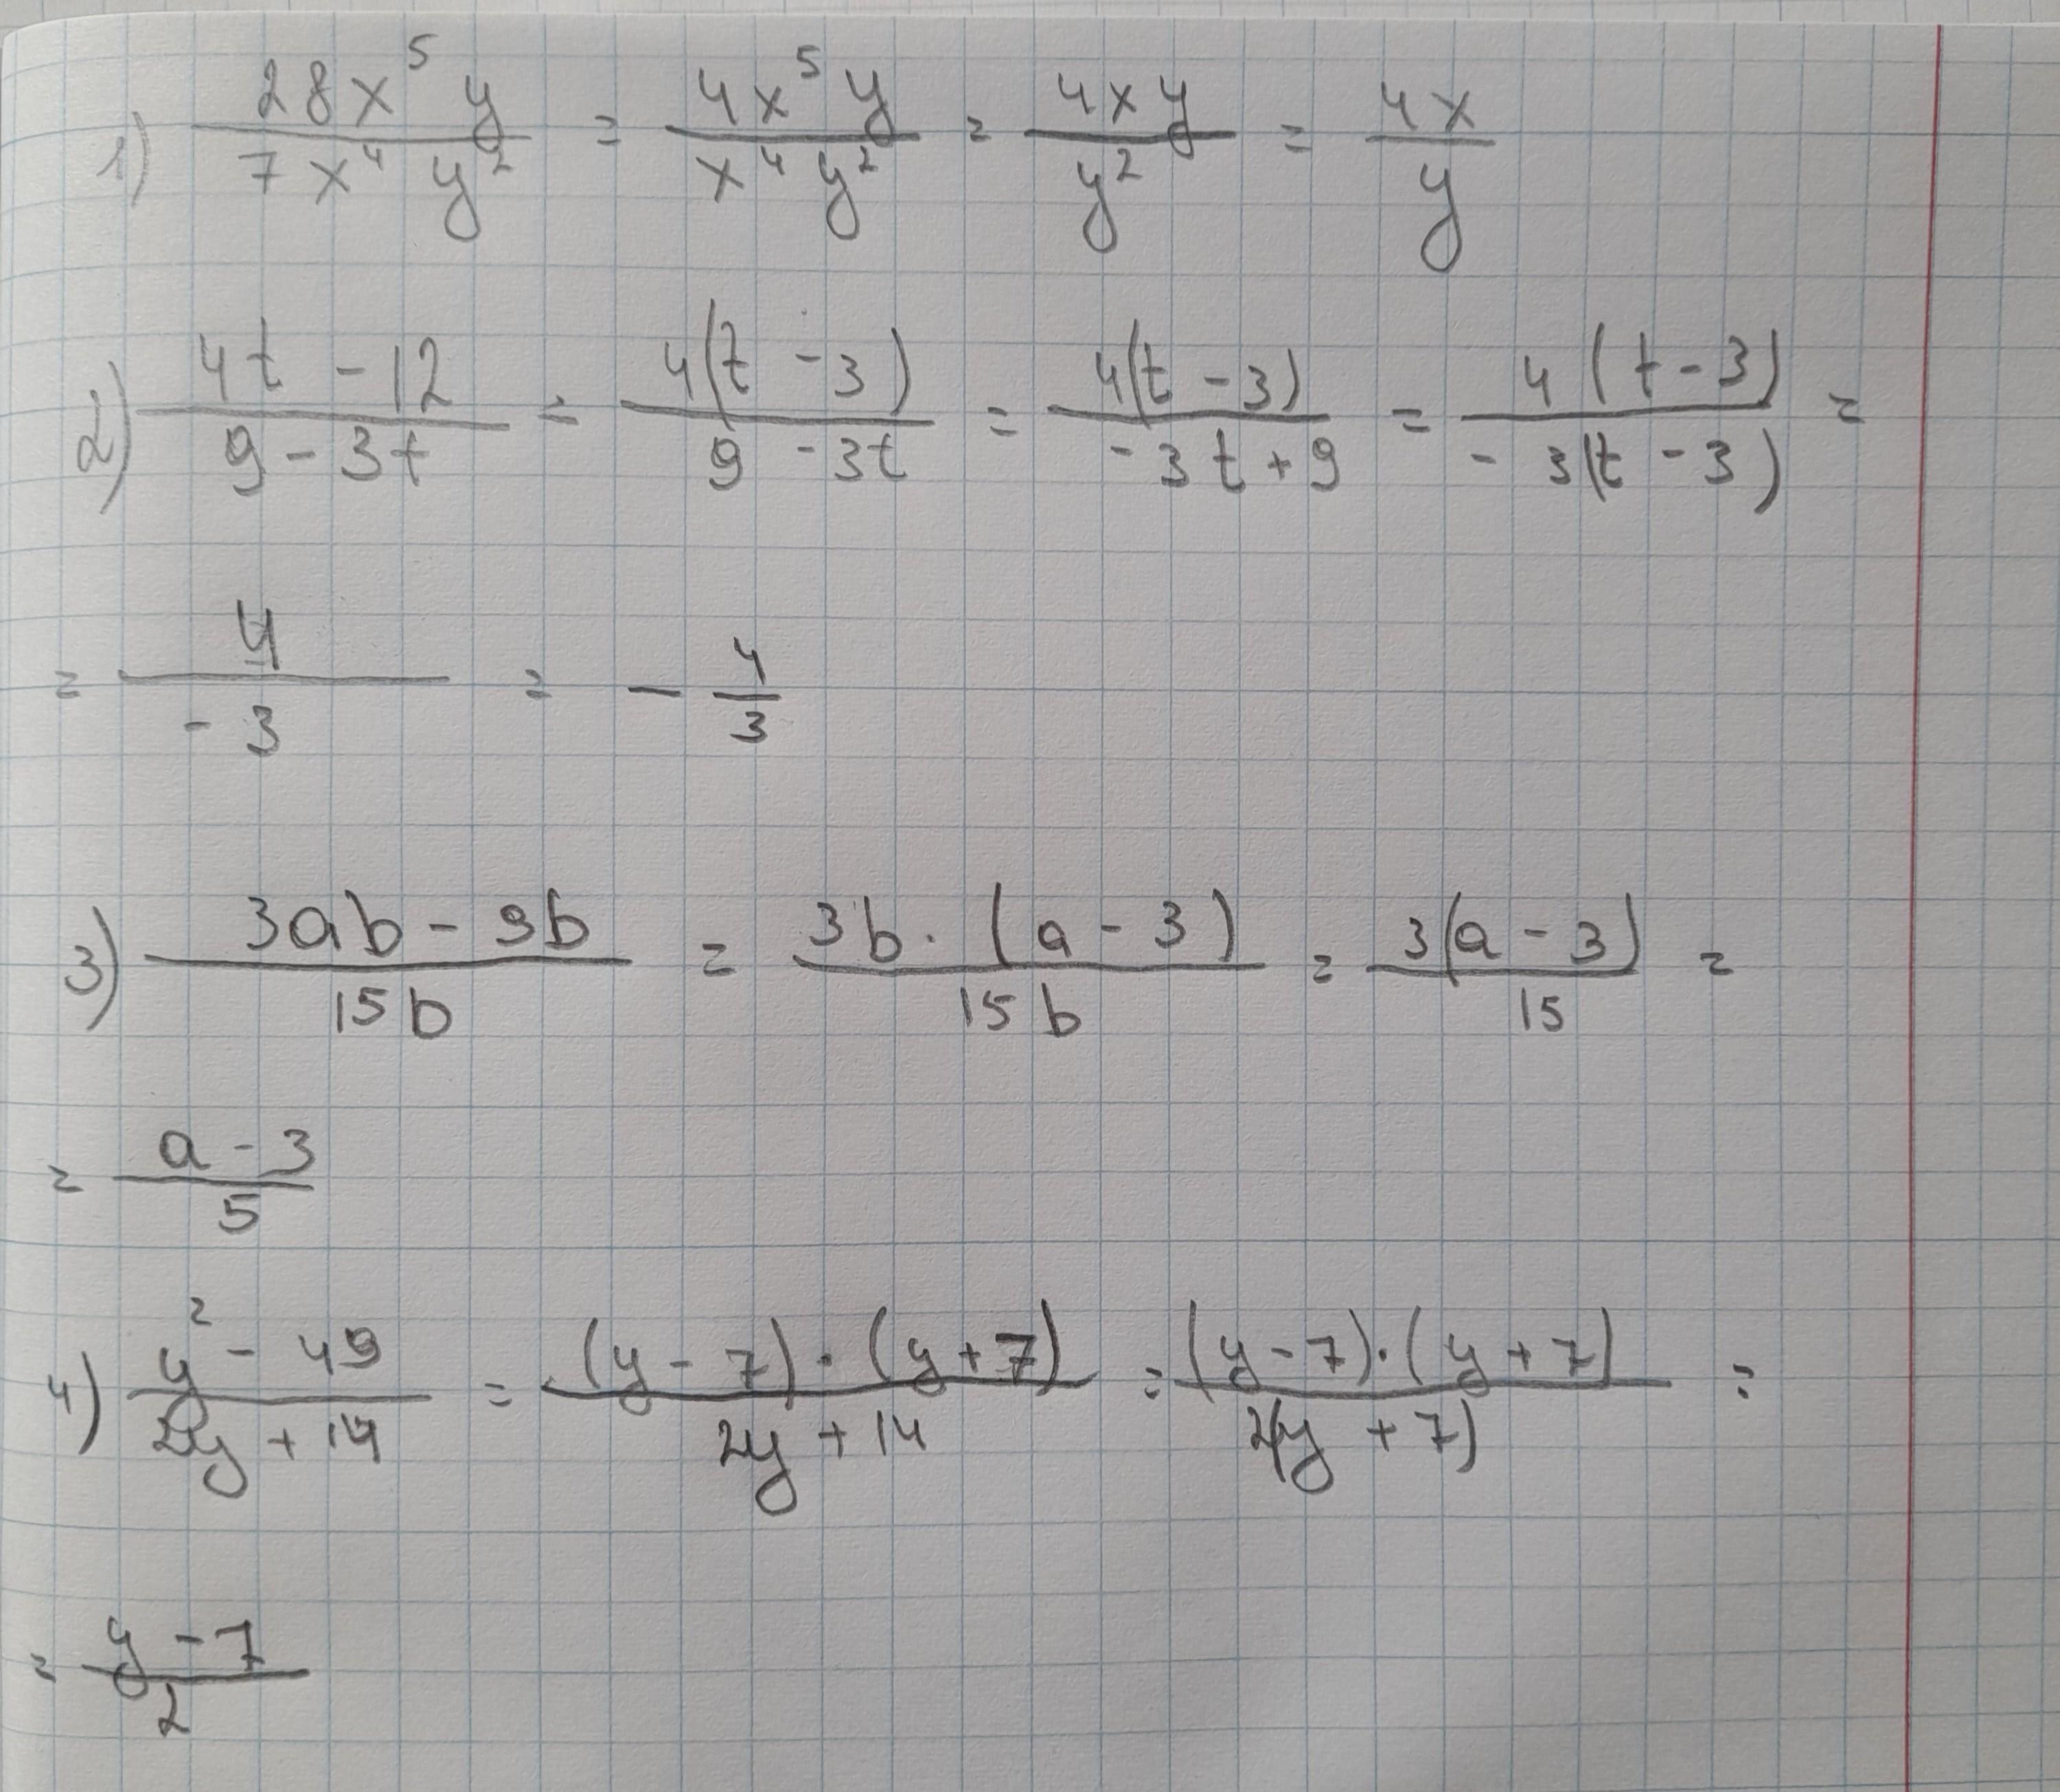 1) \frac{28x^5 y}{7x^4 y^2} = \frac{4x^5 y}{x^4 y^2} = \frac{4xy}{y^2} = \frac{4x}{y}
2) \frac{4t - 12}{9 - 3t} = \frac{4(t - 3)}{9 - 3t} = \frac{4(t - 3)}{-3t + 9} = \frac{4(t - 3)}{-3(t - 3)} =
= \frac{4}{-3} = -\frac{4}{3}
3) \frac{3ab - 9b}{15b} = \frac{3b \cdot (a - 3)}{15b} = \frac{3(a - 3)}{15} =
= \frac{a - 3}{5}
4) \frac{y^2 - 49}{2y + 14} = \frac{(y - 7) \cdot (y + 7)}{2y + 14} = \frac{(y - 7) \cdot (y + 7)}{2(y + 7)} =
= \frac{y - 7}{2}